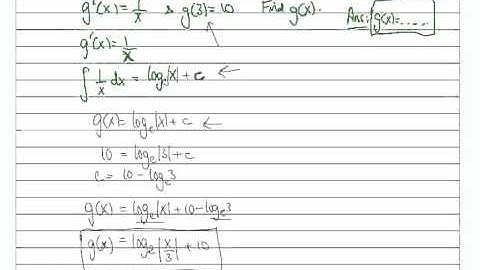 g'(x) = 1/x & g(3) = 10 Find g(x). Ans: g(x) = .....
g'(x) = 1/x
∫ 1/x dx = logₑ|x| + c ←
g(x) = logₑ|x| + c ←
10 = logₑ|3| + c
c = 10 - logₑ3
g(x) = logₑ|x| + 10 - logₑ3
g(x) = logₑ|x/3| + 10